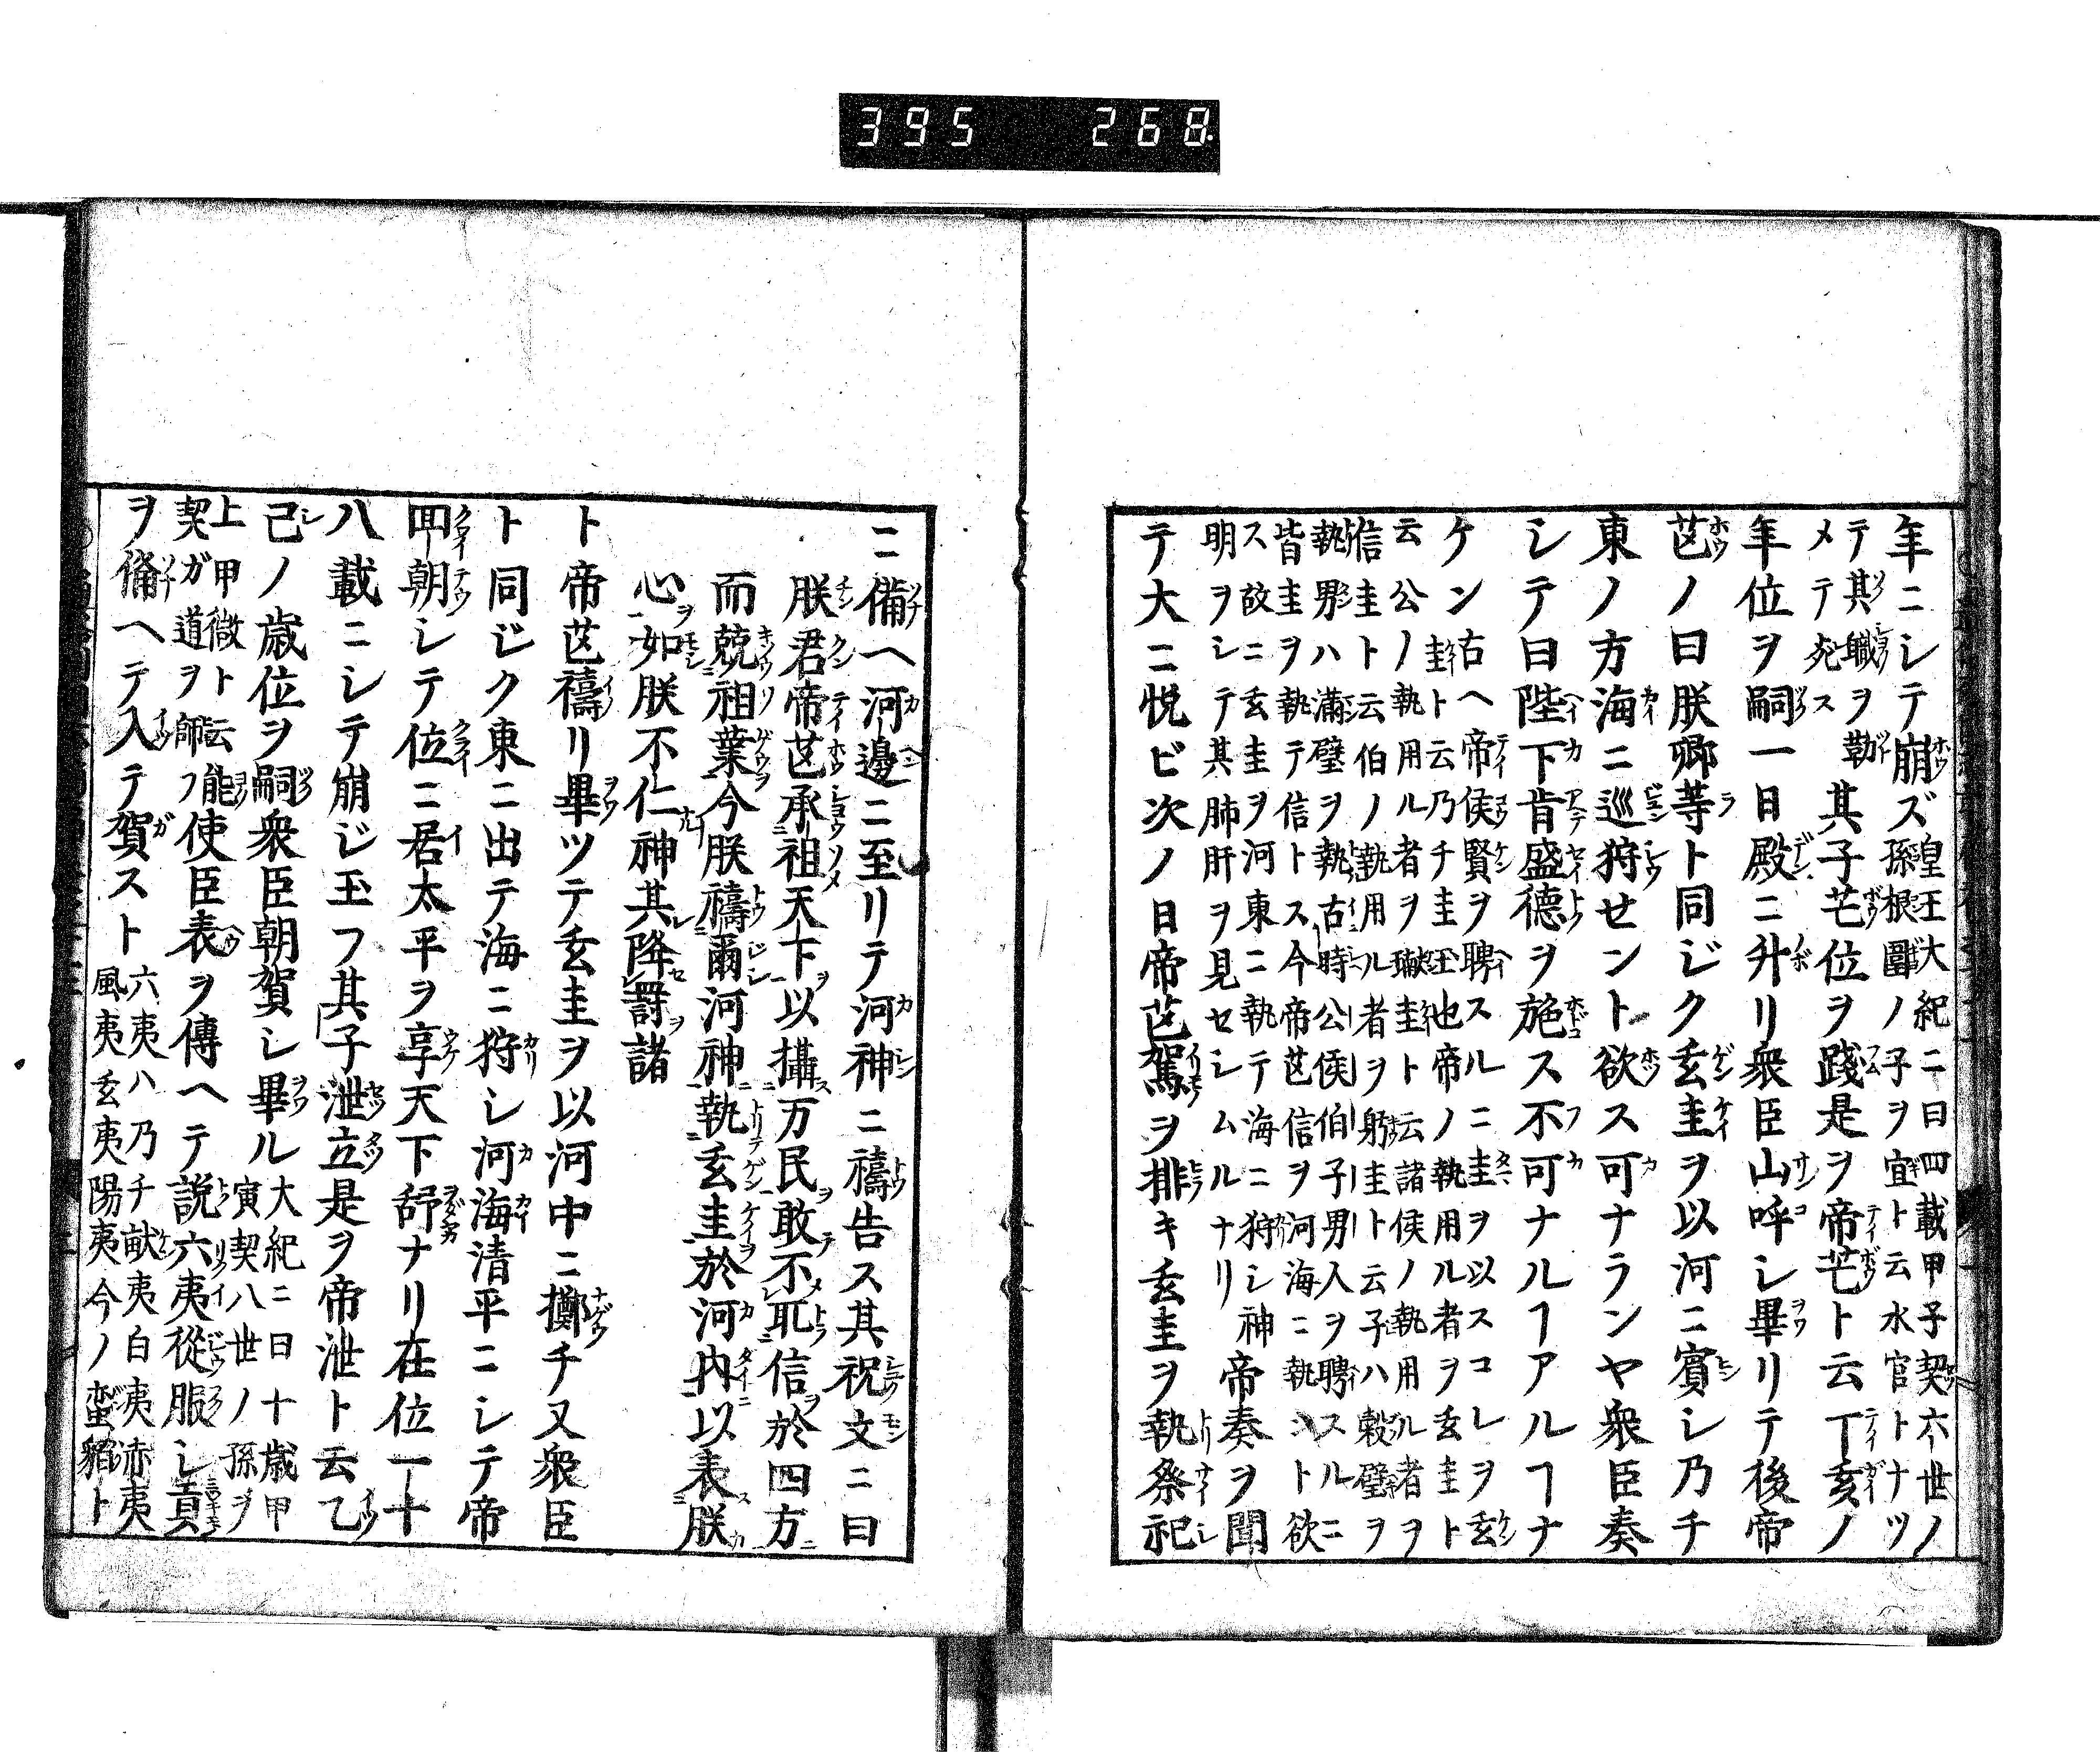 395 268
年ニシテ崩ズ皇王大紀ニ曰四載甲子契六世ノ
孫根圉ノ子ヲ宜ト云水官トナツ
テ其職ヲ勤
メテ死ス
其子芒位ヲ踐是ヲ帝芒ト云丁亥ノ
年位ヲ嗣一日殿ニ升リ衆臣山呼シ畢リテ後帝
芒ノ曰朕卿等ト同ジク玄圭ヲ以河ニ賓シ乃チ
東ノ方海ニ巡狩せント欲ス可ナランヤ衆臣奏
シテ曰陛下肯盛德ヲ施ス不可ナルヿアルヿナ
ケン
古ヘ帝侯賢ヲ聘スルニ圭ヲ以スコレヲ玄
圭ト云乃チ圭玉也帝ノ執用ル者ヲ玄圭ト
云公ノ執用ル者ヲ瓛圭ト云諸侯ノ執用ル者ヲ
信圭ト云伯ノ執用ル者ヲ躬圭ト云子ハ穀璧ヲ
執男ハ滿璧ヲ執古時公侯伯子男人ヲ聘スルニ
皆圭ヲ執テ信トス今帝芒信ヲ河海ニ執ント欲
ス故ニ玄圭ヲ河東ニ執テ海ニ狩シ神
明ヲシテ其肺肝ヲ見セシムルナリ
帝奏ヲ聞
テ大ニ悅ビ次ノ日帝芒駕ヲ排キ玄圭ヲ執祭祀
ニ備ヘ河邊ニ至リテ河神ニ禱告ス其祝文ニ曰
朕君帝芒承祖天下以攝万民敢不耴信於四方
而兢祖業今朕禱爾河神執玄圭於河內以表朕
心如朕不仁神其降罸諸
ト帝芒禱リ畢ツテ玄圭ヲ以河中ニ擲チ又衆臣
ト同ジク東ニ出テ海ニ狩シ河海清平ニシテ帝
囬朝シテ位ニ居太平ヲ享天下舒ナリ在位一十
八載ニシテ崩じ玉フ其子泄立是ヲ帝泄ト云乙
己ノ歲位ヲ嗣衆臣朝賀シ畢ル
大紀ニ曰十歲甲
寅契八世ノ孫ヲ
上甲微ト云能
契ガ道ヲ師フ
使臣表ヲ傳ヘテ說六夷從服シ貢
ヲ備ヘテ入テ賀スト
六夷ハ乃チ畎夷白夷赤夷
風夷玄夷陽夷今ノ蛮貊ト